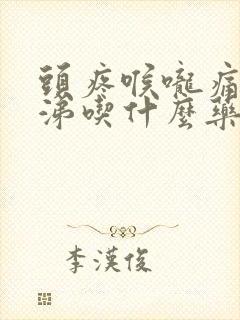 頭疼喉嚨痛
涕喫什麼藥
李漢俊